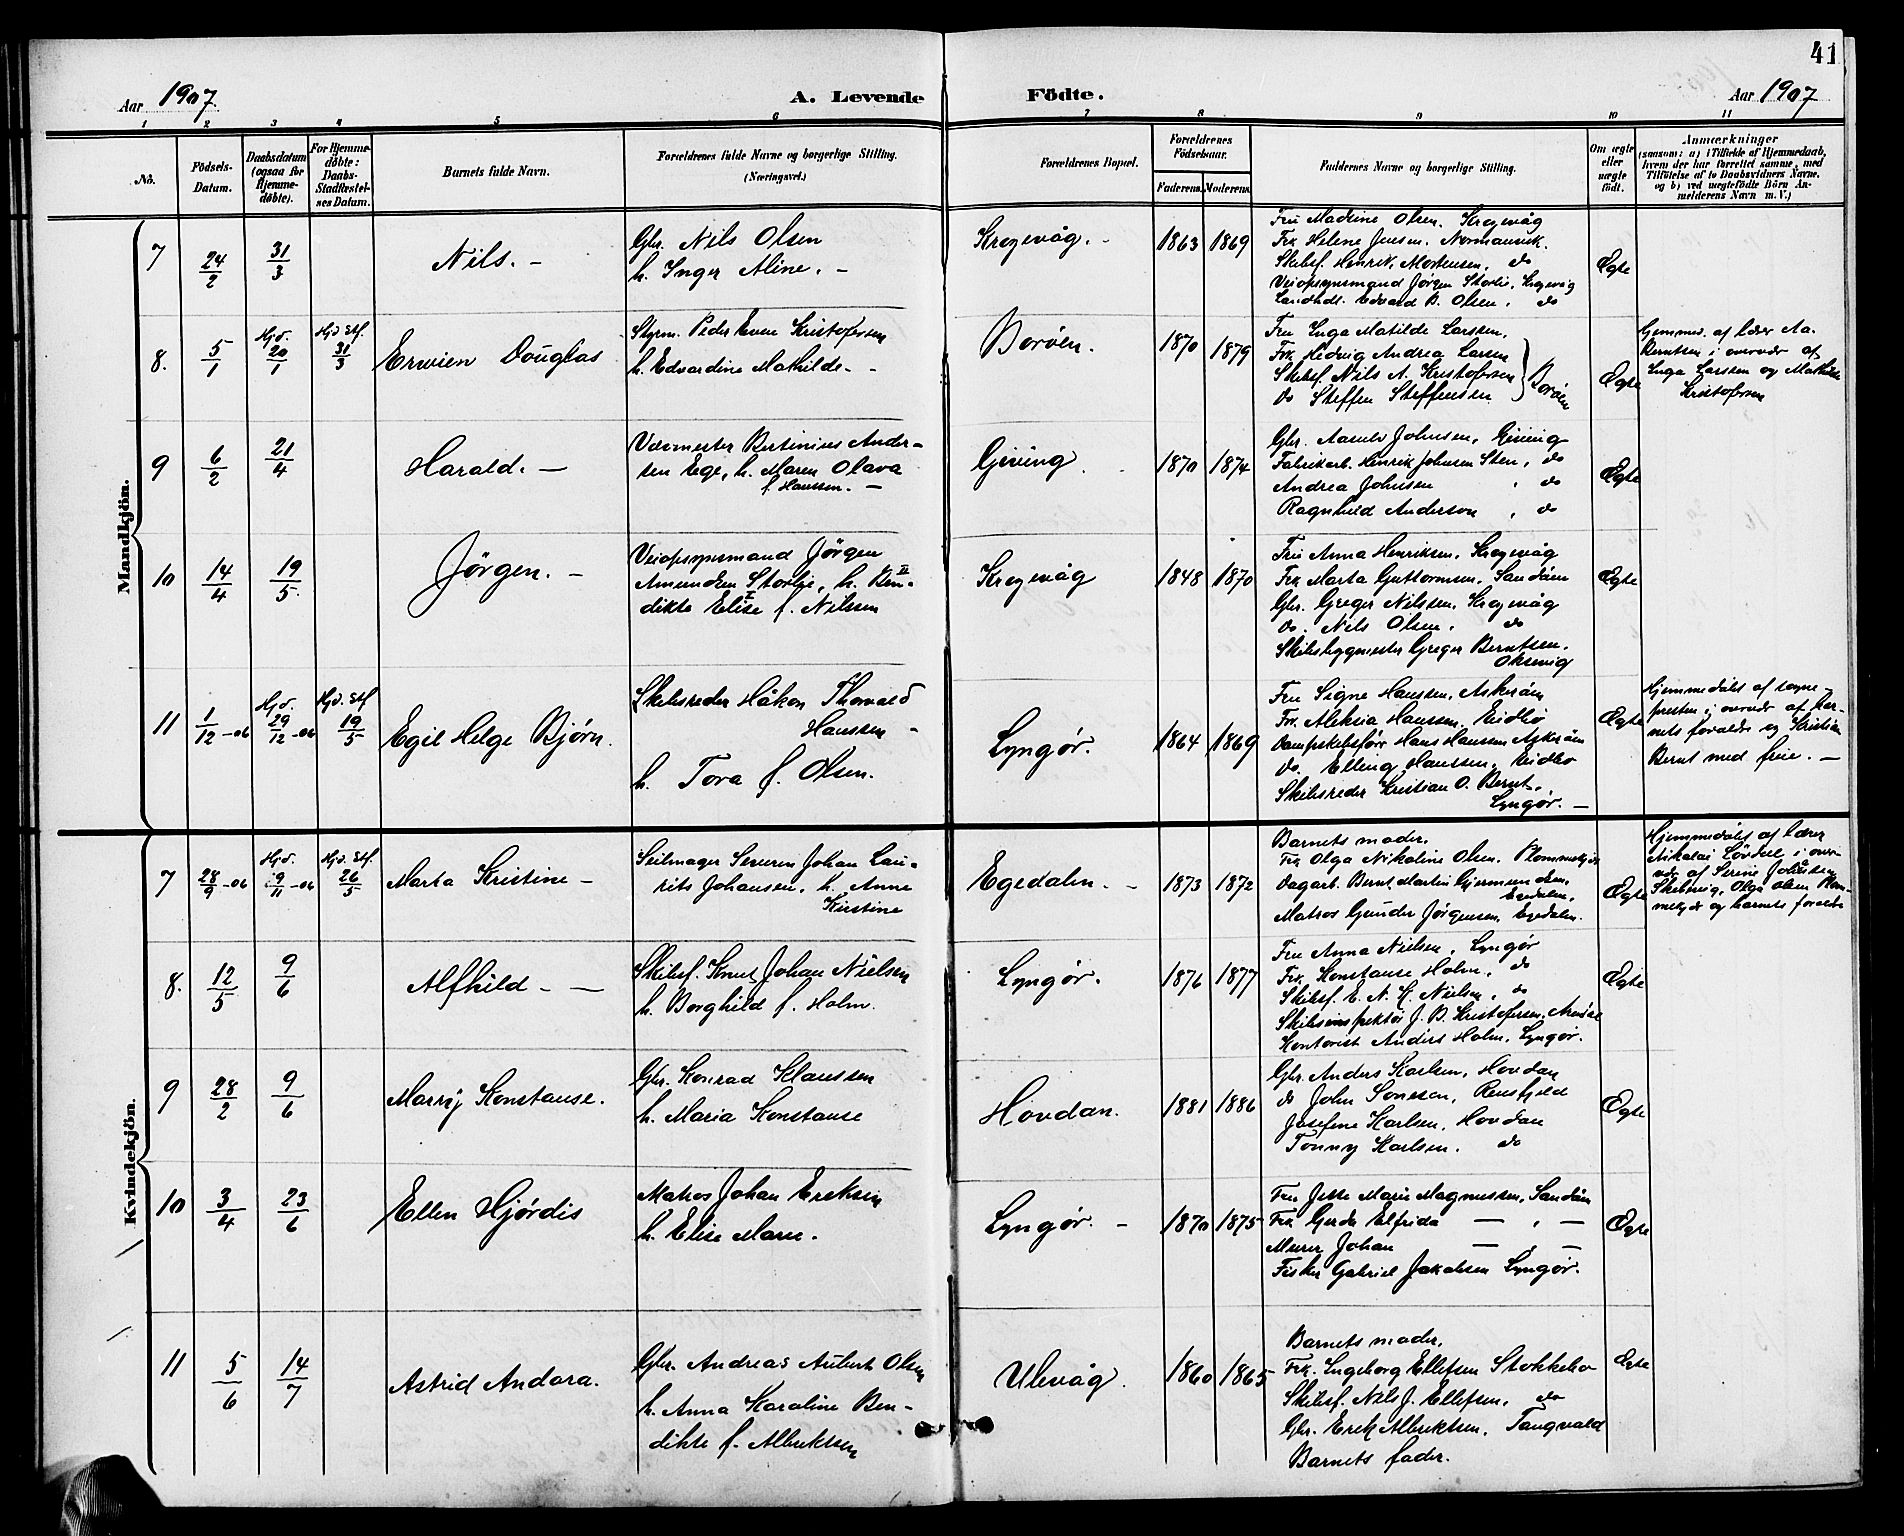 41
Aar 1907. A. Levende Födte. Aar 1907
1 2 3 4 5 6 7 8 9 10 11
No.
Födsels-
Datum.
Daabsdatum
(ogsaa for
Hjemme-
döbte).
For Hjemme-
döbte:
Daabs-
Stadfæstel-
ses Datum.
Barnets fulde Navn.
Forældrenes fulde Navne og borgerlige Stilling.
(Næringsvei.)
Forældrenes Bopæl.
Forældrenes
Födselsaar.
Faderens. Moderens.
Faddernes Navne og borgerlige Stilling.
Om ægte
eller
uægte
födt.
Anmærkninger
(saasom: a) i Tilfælde af Hjemmedaab,
hvem der har forrettet samme, med
Tilföielse af to Daabsvidners Navne.
og b) ved uægtefödte Börn An-
melderens Navn m. V.)
Mandkjön.
7 24/2 31/3 Nils. -
Gbr. Nils Olsen
h. Inger Aline. -
Krogevåg. - 1863 1869
Fru Madsine Olsen. Krogevåg
Frk. Helene Jensen. Normansvik.
Skibsf. Henrik Mortensen, do
Veiopsynsmand Jørgen Storlie, Krogevåg
Landhdl. Edvard B. Olsen, do
Ægte
8. 5/1 Hjd. 20/1 Hjd. Stf. 31/3 Erwien Douglas
Styrm. Peder Even Kristofersen
h. Edvardine Mathilde - -
Borøen. 1870 1879
Fru Inga Matilde Larssen,
Frk. Hedvig Andrea Larsen
Skibsf. Nils A. Kristofersen
do Steffen Steffensen
Borøen
Ægte
Hjemmed. af lærer Aa.
Berntsen i overvær af
Inga Larssen og Mathilde
Kristofersen
9 6/2 21/4 Harald. -
Værmester Bertinius Ander-
sen Ege, h. Maren Olava
f. Hanssen. -
Gjeving. 1870 1874
Gbr. Aanulv Johnsen, Gjeving
Fabrikarb. Henrik Johnsen Sten, do
Andrea Johnsen, do
Ragnhild Anderson, do
Ægte
10 14/4 19/5 Jörgen. -
Veiopsynsmand Jörgen
Amundsen Storlie, h. Ben-
dikte Elise f. Nilsen
Krogevåg 1848 1870
Fru Anna Henriksen, Krogevåg
Frk Marta Guttormsen, Sandåm
Gbr. Greger Nilssen, Krogevåg
do. Nils Olsen, do
Skibsbygmester Greger Berntsen.
Oksevig
Ægte
11 1/12-06 Hjd. 29/12-06 Hjd. Stf. 19/5 Egil Helge Bjørn.
Skibsreder Håkon Thorvald
Hanssen -
h. Tora f. Olsen.
Lyngør. 1864 1869
Fru Signe Hanssen, Askerøen
Frk. Aleksia Hanssen, Eidbo
Dampskibsförer Hans Hanssen Askerøen
do. Elling Hanssen, Eidbo
Skibsreder Kristian O. Bernt,
Lyngør. -
Ægte
Hjemmedöbt af sogne-
presten i overvær af bar-
nets forældre og Kristian
Bernt med frue. -
Kvindekjön.
7 28/9-06 Hjd. 9/11-06 Hjd. Stf. 26/5 Marta Kristine -
Seilmager Severin Johan Lau-
rits Johansen. h. Anne
Kirstine
Egedalen. - 1873 1872
Barnets moder.
Frk Olga Nikoline Olsen.
Dagarb. Bernt Martin Gjermundsen,
Egedalen,
Matros Gunder Jørgensen, Egedalen.
Ægte
Hjemmedöbt af lærer
Nikolai Løvdal i over-
vær af Serine Johnsen
Skibsvig, Olga Olsen
og barnets forældre
8. 12/5 9/6 Alfhild - -
Skibsf. Knut Johan Nielsen
h. Borghild f. Holm.
Lyngør. 1876 1877
Fru Anna Nielsen, Lyngør
Frk. Konstanse Holm, do
Skibsf. E. N. K. Nielsen, do
Skibsinspektör J. B. Kristofersen, Arendal
Kontorist Anders Holm, Lyngør.
Ægte
9 28/2 9/6 Marrij Konstanse.
Gbr. Konrad Klaussen
h. Maria Konstanse
Hovdan. 1881 1886
Gbr. Anders Karlsen, Hovdan
do John Sonesen, Rensfjeld
Josefine Karlsen, Hovdan
Tonny Karlsen. do
Ægte
10 3/4 23/6 Ellen Hjørdis
Matros Johan Eriksen
h. Elise Marie.
Lyngør. - 1870 1875
Fru Jesse Marie Magnussen, Sandåm
Frk Gerda Elfrida — , —
Murer Johan — , —
Fisker Gabriel Jakobsen Lyngør.
Ægte
11 5/6 14/7 Astrid Andora.
Gbr. Andreas Aubert Olsen
h. Anna Karoline Ben-
dikte f. Albriktsen
Ulevåg. 1860 1865
Barnets moder,
Frk. Ingeborg Ellefsen Stokkebo
Skibsf. Nils J. Ellefsen, do
Gbr. Erik Albriktsen, Tangvald
Barnets fader.
Ægte